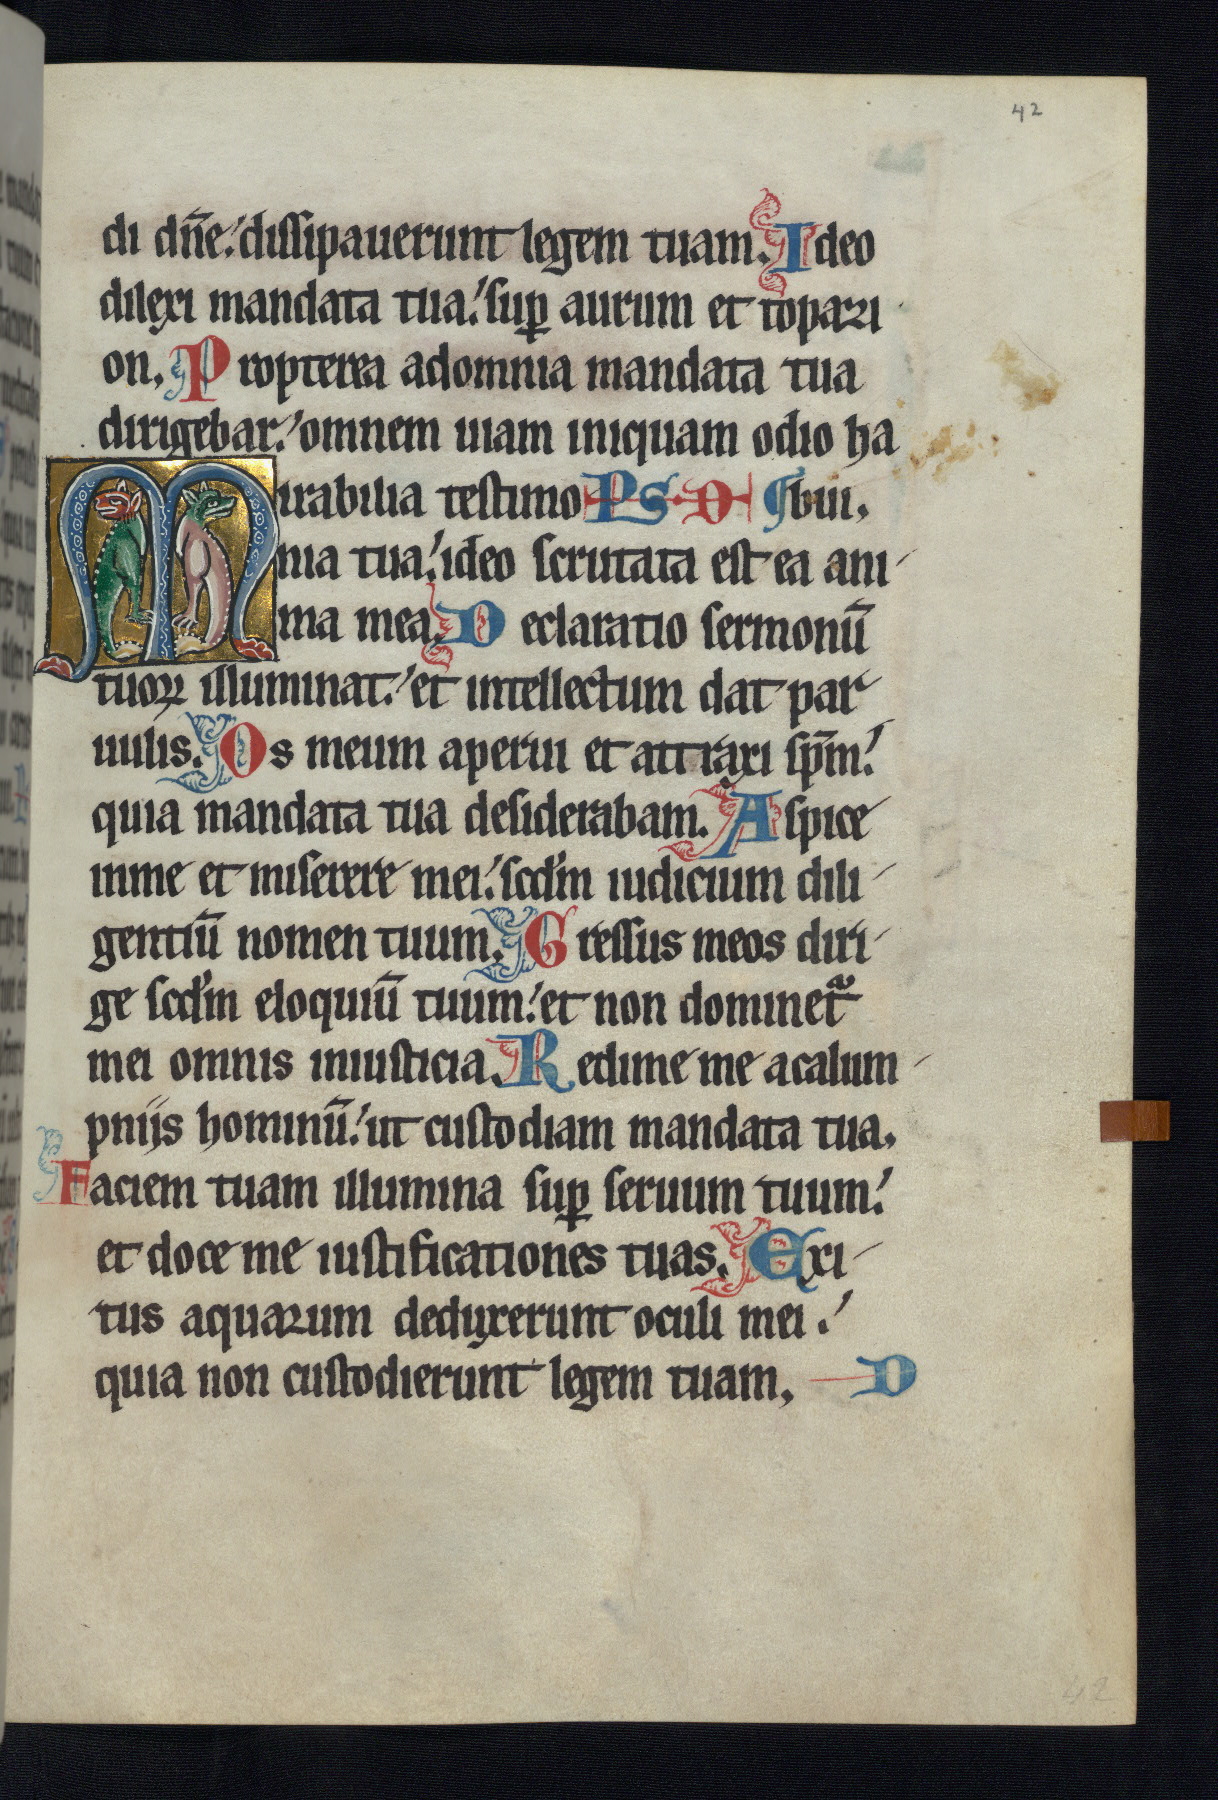 42
di dn̄e. dissipauerunt legem tuam. Ideo
dilexi mandata tua. suꝑ aurum et topazi
on. Propterea adomnia mandata tua
dirigebar. omnem uiam iniquam odio ha
Mirabilia testimo PS. D ¶ bui.
nia tua. ideo scrutata est ea ani
ma mea. Declaratio sermonū
tuoꝝ illuminat. et intellectum dat par
uulis. Os meum aperui et attraxi sp̄m.
quia mandata tua desiderabam. Aspice
inme et miserere mei. scd'm iudicium dili
gentiū nomen tuum. Gressus meos diri
ge scd'm eloquiū tuum. et non dominet᷑
mei omnis iniusticia. Redime me acalum
pnijs hominū. ut custodiam mandata tua.
Faciem tuam illumina suꝑ seruum tuum.
et doce me iustificationes tuas. Exi
tus aquarum deduxerunt oculi mei.
quia non custodierunt legem tuam. D
42